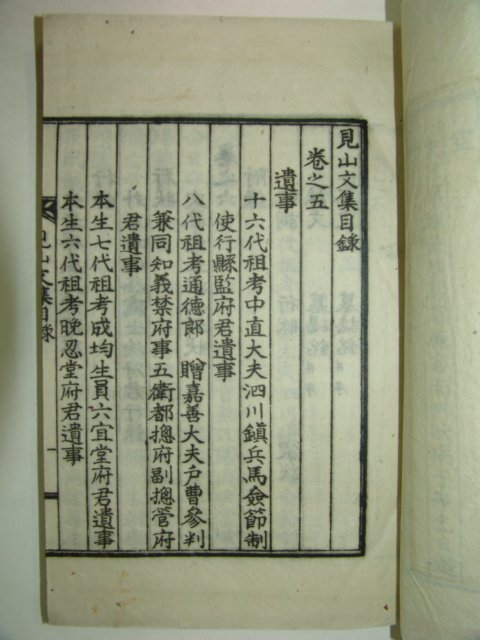 見山文集目錄
卷之五
遺事
十六代祖考中直大夫泗川鎭兵馬僉節制
使行縣監府君遺事
八代祖考通德郞 贈嘉善大夫戶曹參判
兼同知義禁府事五衛都摠府副摠管府
君遺事
本生七代祖考成均生員六宜堂府君遺事
本生六代祖考晩忍堂府君遺事
見山文集目錄
一